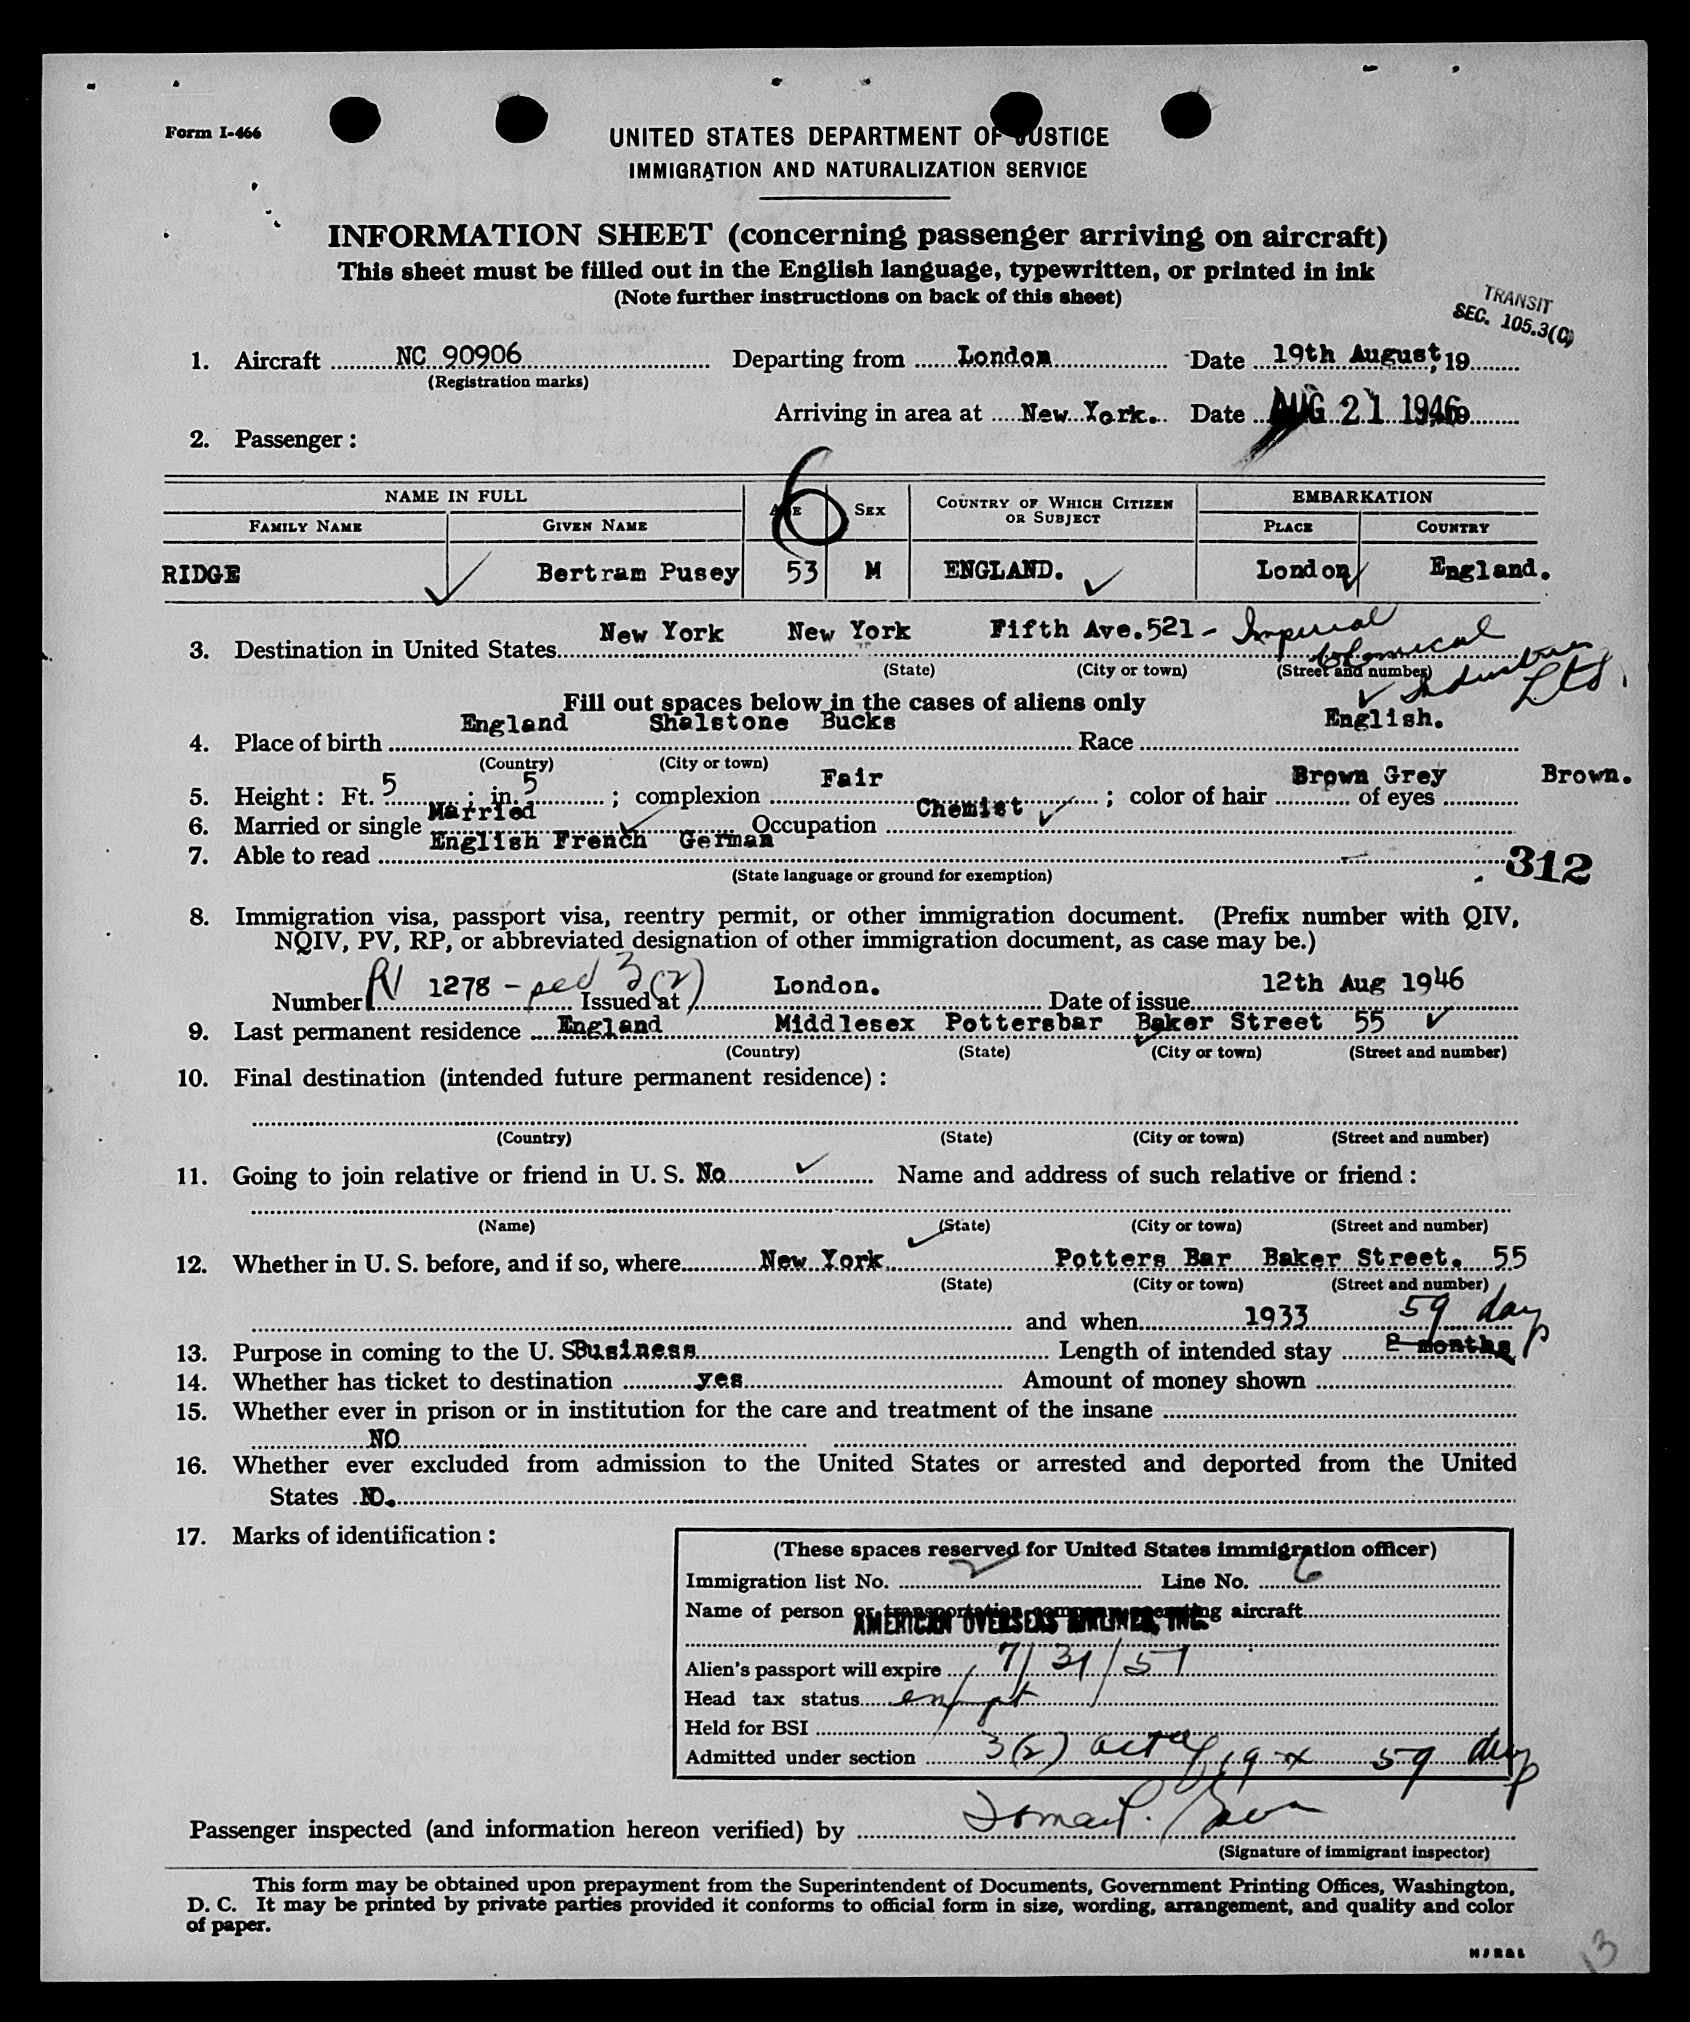 Form I-466
UNITED STATES DEPARTMENT OF JUSTICE
IMMIGRATION AND NATURALIZATION SERVICE
INFORMATION SHEET (concerning passenger arriving on aircraft)
This sheet must be filled out in the English language, typewritten, or printed in ink
(Note further instructions on back of this sheet)
TRANSIT
SEC. 105.3(C)
1. Aircraft NC 90906 Departing from London Date 19th August, 19
(Registration marks)
Arriving in area at New York. Date AUG 21 1946
2. Passenger:
6
NAME IN FULL AGE SEX COUNTRY OF WHICH CITIZEN OR SUBJECT EMBARKATION
FAMILY NAME GIVEN NAME PLACE COUNTRY
RIDGE Bertram Pusey 53 M ENGLAND. London England.
3. Destination in United States New York New York Fifth Ave.521- Imperial Chemical Industries Ltd.
(State) (City or town) (Street and number)
Fill out spaces below in the cases of aliens only
4. Place of birth England Shalstone Bucks Race English.
(Country) (City or town)
5. Height: Ft. 5; in. 5; complexion Fair; color of hair Brown Grey of eyes Brown.
6. Married or single Married Occupation Chemist
7. Able to read English French German
(State language or ground for exemption)
312
8. Immigration visa, passport visa, reentry permit, or other immigration document. (Prefix number with QIV,
NQIV, PV, RP, or abbreviated designation of other immigration document, as case may be.)
Number 1278 - 3(2) Issued at London. Date of issue 12th Aug 1946
9. Last permanent residence England Middlesex Pottersbar Baker Street 55
(Country) (State) (City or town) (Street and number)
10. Final destination (intended future permanent residence):
(Country) (State) (City or town) (Street and number)
11. Going to join relative or friend in U. S. No Name and address of such relative or friend:
(Name) (State) (City or town) (Street and number)
12. Whether in U. S. before, and if so, where New York Potters Bar Baker Street. 55
(State) (City or town) (Street and number)
and when 1933 59 days
13. Purpose in coming to the U. S Business Length of intended stay 2 months
14. Whether has ticket to destination yes Amount of money shown
15. Whether ever in prison or in institution for the care and treatment of the insane
NO
16. Whether ever excluded from admission to the United States or arrested and deported from the United
States NO.
17. Marks of identification:
(These spaces reserved for United States immigration officer)
Immigration list No. 2 Line No. 6
Name of person or transportation company operating aircraft
AMERICAN OVERSEAS AIRLINES, INC.
Alien's passport will expire 7/31/51
Head tax status exempt
Held for BSI
Admitted under section 3(2) 59 days
Passenger inspected (and information hereon verified) by
(Signature of immigrant inspector)
This form may be obtained upon prepayment from the Superintendent of Documents, Government Printing Offices, Washington,
D. C. It may be printed by private parties provided it conforms to official form in size, wording, arrangement, and quality and color
of paper.
13